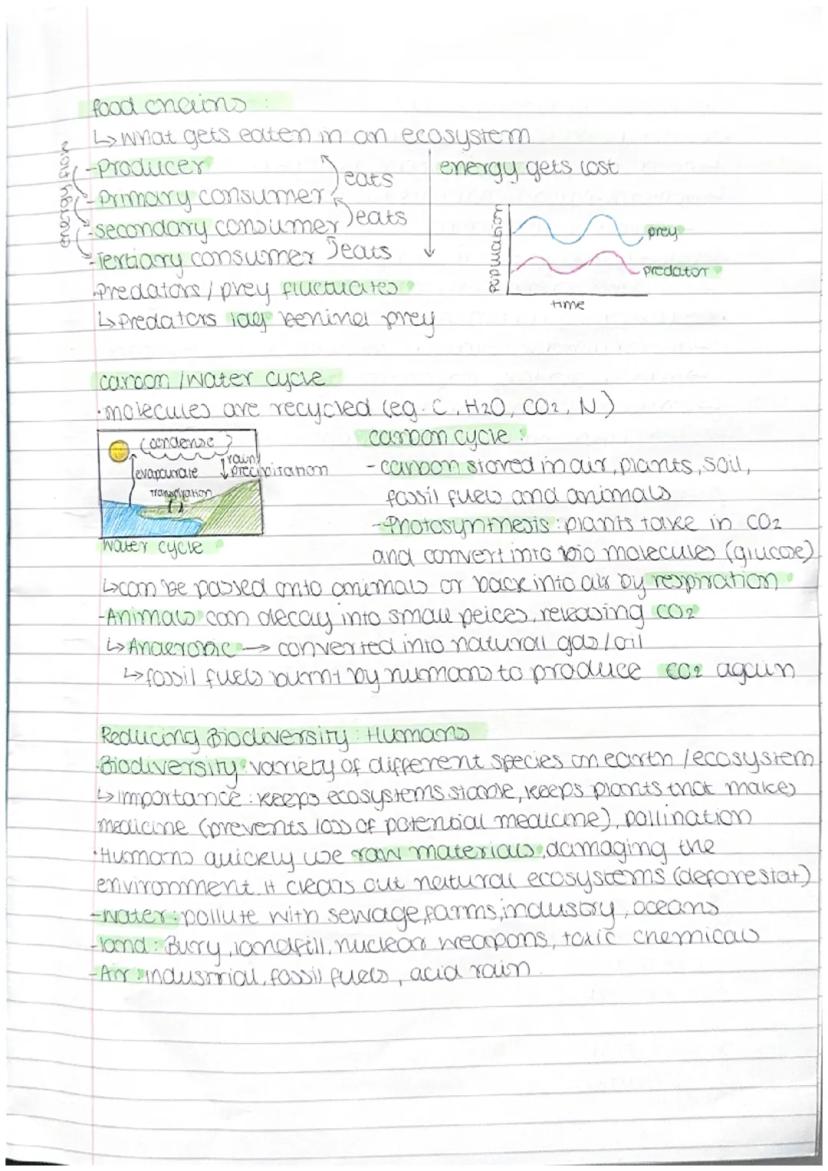 food chains :
↳ what gets eaten in an ecosystem
-Producer
- Primary consumer
-secondary consumer
-Tertiary consumer
eats
eats
eats
energy gets lost
Population
prey
predator
time
Predators / prey fluctuates
↳ Predators lag behind prey
carbon /water cycle
·molecules are recycled (eg. C, H2O, CO2, N)
(condense)
evapourate
rain/
precipitation
water cycle
carbon cycle :
- carbon stored in air, plants, soil,
fossil fuels and animals
-Photosynthesis : plants take in CO2
and convert into bio molecules (glucose)
↳can be passed onto animals or back into air by respiration
-Animals can decay into small peices, releasing CO2
↳Anaerobic → converted into natural gas/oil
↳fossil fuels burnt by humans to produce CO2 again
Reducing Biodiversity : Humans
·Biodiversity : variety of different species on earth /ecosystem
↳importance : keeps ecosystems stable, keeps plants that makes
medicine (prevents loss of potential medicine), pollination
·Humans quickly use raw materials, damaging the
environment. It clears out natural ecosystems (deforestat)
-water : pollute with sewage, farms, industry, oceans
-land : Burry, landfill, nuclear weapons, toxic chemicals
-Air : industrial, fossil fuels, acid rain